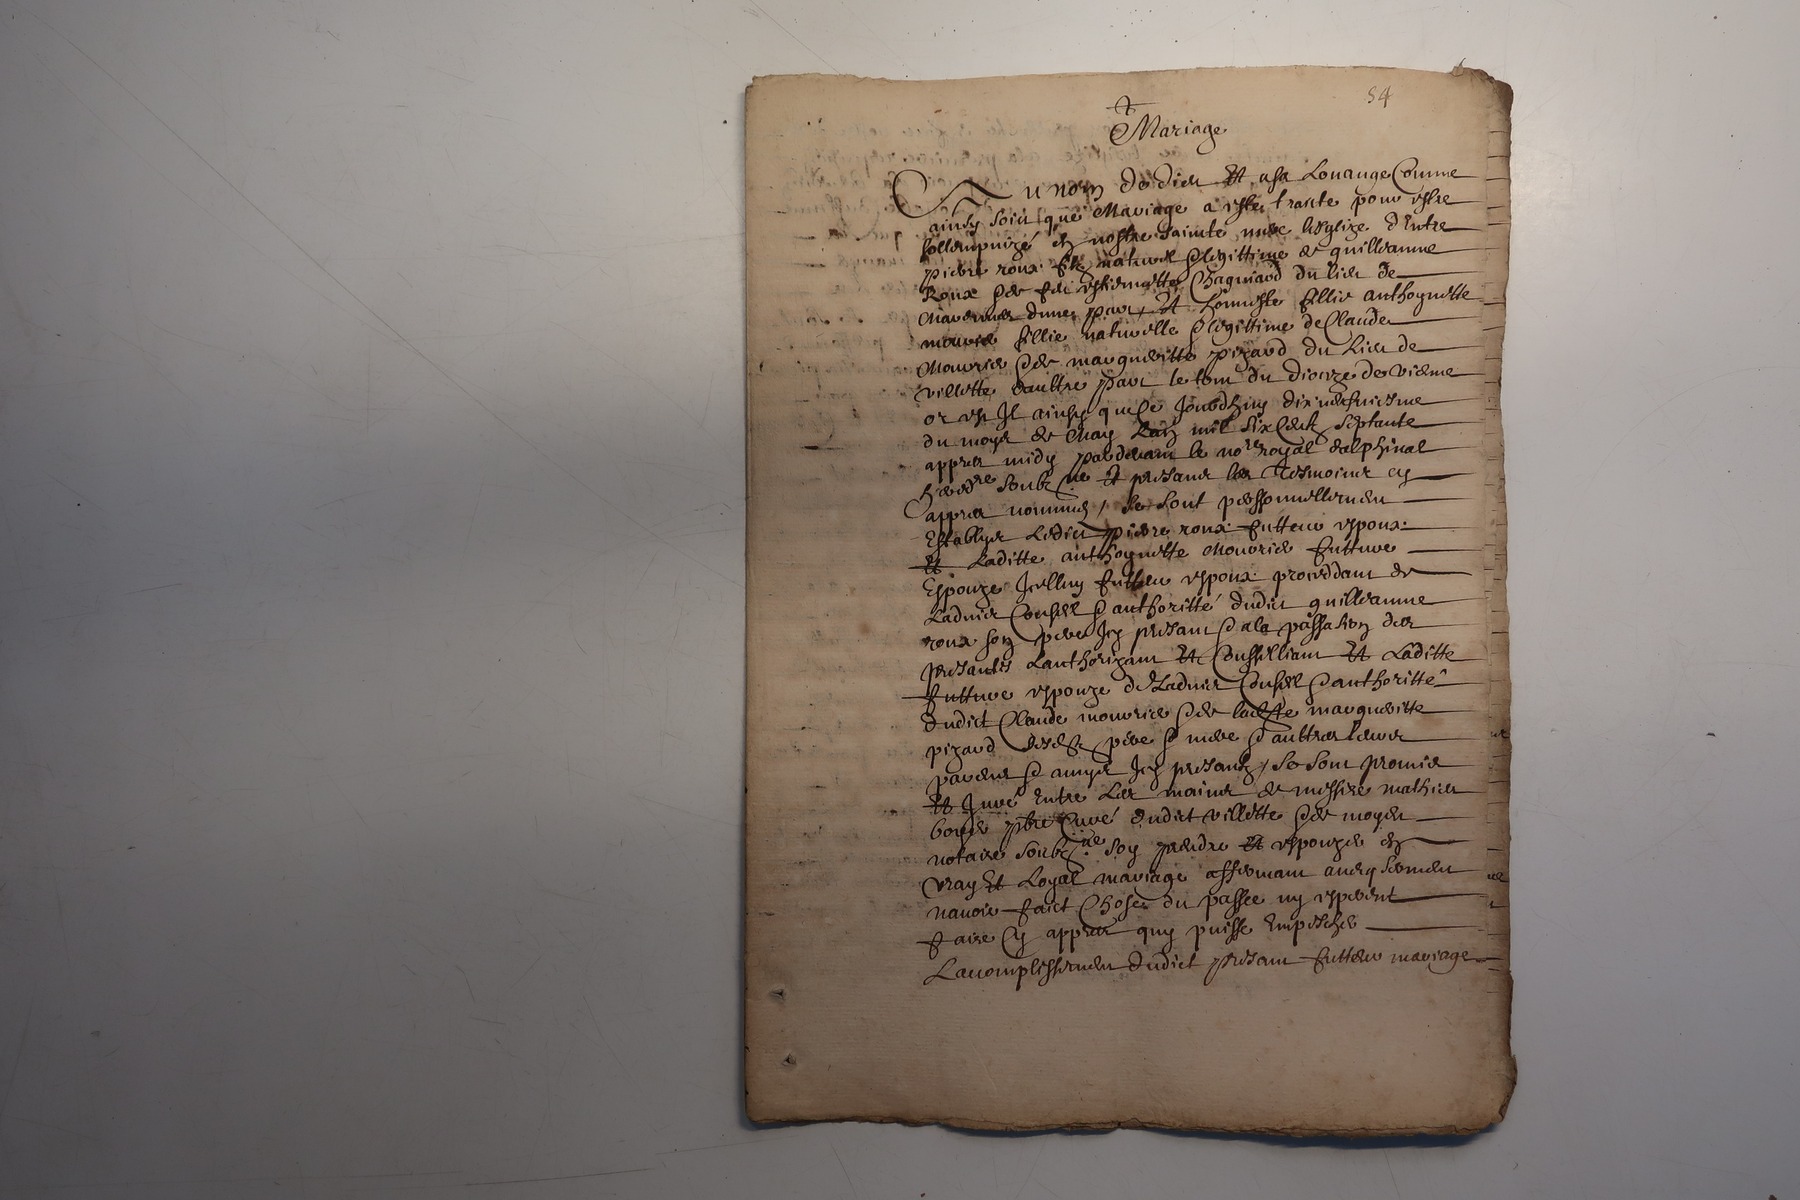 54
Mariage
Au nom de dieu Et a sa Louange Comme
ainsy soict que Mariage a estes traicte pour estre
sollempnizé en nostre saincte mere lesglize dEntre
pierre roux filz naturel & legittime de guilleaume
Roux & de feu estiennette Chagniard du lieu de
dune part, Et honneste fillie anthoynette
mourier fillie naturelle & legittime de Claude
Mourier & de margueritte pizard du Lieu de
villette daultre part le tout du dioceze de vienne
or est Il ainsy que Ce Jourdhuy dixneufviesme
du moys de May Lan mil six Centz septante
appres midy pardevant le nore royal dalphinal
heredre soubzne Et presant les Tesmoins cy
appres nommes, se sont personnellement
Establys Ledict pierre roux futteur espoux
Et Laditte anthoynette Mourier futture
Espouze Icelluy futteur espoux proceddant de
Ladvis Conseil & authoritté dudict guilleaume
roux son pere Icy presant & a la passation des
presantes Lauthorizant Et Conseilliant Et Laditte
futture espouze de Ladvis Conseil & authoritté
dudict Claude mourier & de laditte margueritte
pizard sesdz pere & mere & aultres leurs
parents & amys Icy presantz, se sont promis
Et Juré Entre Les mains de messire mathieu
pbre Curé dudict villette & de moydt
notaire soubzne soy prendre Et espouzer en
vray Et Loyal mariage affermant avecq serment
navoir faict Chose du passee ny esperent
faire Cy appres quy puisse Empescher
Lacomplissement dudict presant futteur mariage